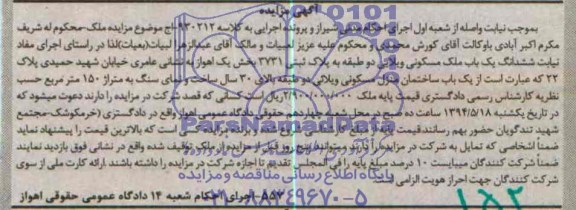 آگهی مزایده
بموجب نیابت واصله از شعبه اول اجرای احکام مدنی شیراز و پرونده اجرایی به کلاسه ۹۳۰۲۱۲ اج موضوع مزایده ملک-محکوم له شریف
مکرم اکبر آبادی باوکالت آقای کورش محمدی و محکوم علیه عزیز لمبیات و مالک آقای عبدالزهرا لبیات(معیت)لذا در راستای اجرای مفاد
نیابت ششدانگ یک باب ملک مسکونی ویلائی دو طبقه به پلاک ثبتی ۳۷۳۱ بخش یک اهواز به نشانی عامری خیابان شهید حمیدی پلاک
۲۲ که عبارت است از یک باب ساختمان منزل مسکونی ویلائی دو طبقه بالای ۳۰ سال ساخت و نمای سنگ به متراژ ۱۵۰ متر مربع حسب
نظریه کارشناس رسمی دادگستری قیمت پایه ملک ریال است کسانی که قصد شرکت در مزایده را دارند دعوت میشود که
در تاریخ یکشنبه ۱۳۹۴/۵/۱۸ ساعت ده صبح در محل شعبه چهاردهم حقوقی دادگاه عمومی اهواز واقع در دادگستری (خرمکوشک-مجتمع
شهید تندگویان حضور بهم رسانند قیمت پایه از است که بالاترین قیمت را پیشنهاد نماید
ضمناً اشخاصی که تمایل به شرکت در مزایده را دارند میتوانند پنج روز قبل از مزایده از ملک توقیف شده واقع در نشانی فوق بازدید نمایند
ضمناً شرکت کنندگان میبایست ۱۰ درصد مبلغ پایه را فی المجلس تقدیم تا اجازه شرکت در مزایده را داشته باشند .ارائه کارت ملی از سوی
شرکت کنندگان جهت احراز هویت الزامی است
۵۵۲-اجرای احکام شعبه ۱۴ دادگاه عمومی حقوقی اهواز
ParsNamadData
پایگاه اطلاع رسانی مناقصه و مزایده
۰۲۱-۸۸۳۴۹۶۷۰-۵
۱۸۲